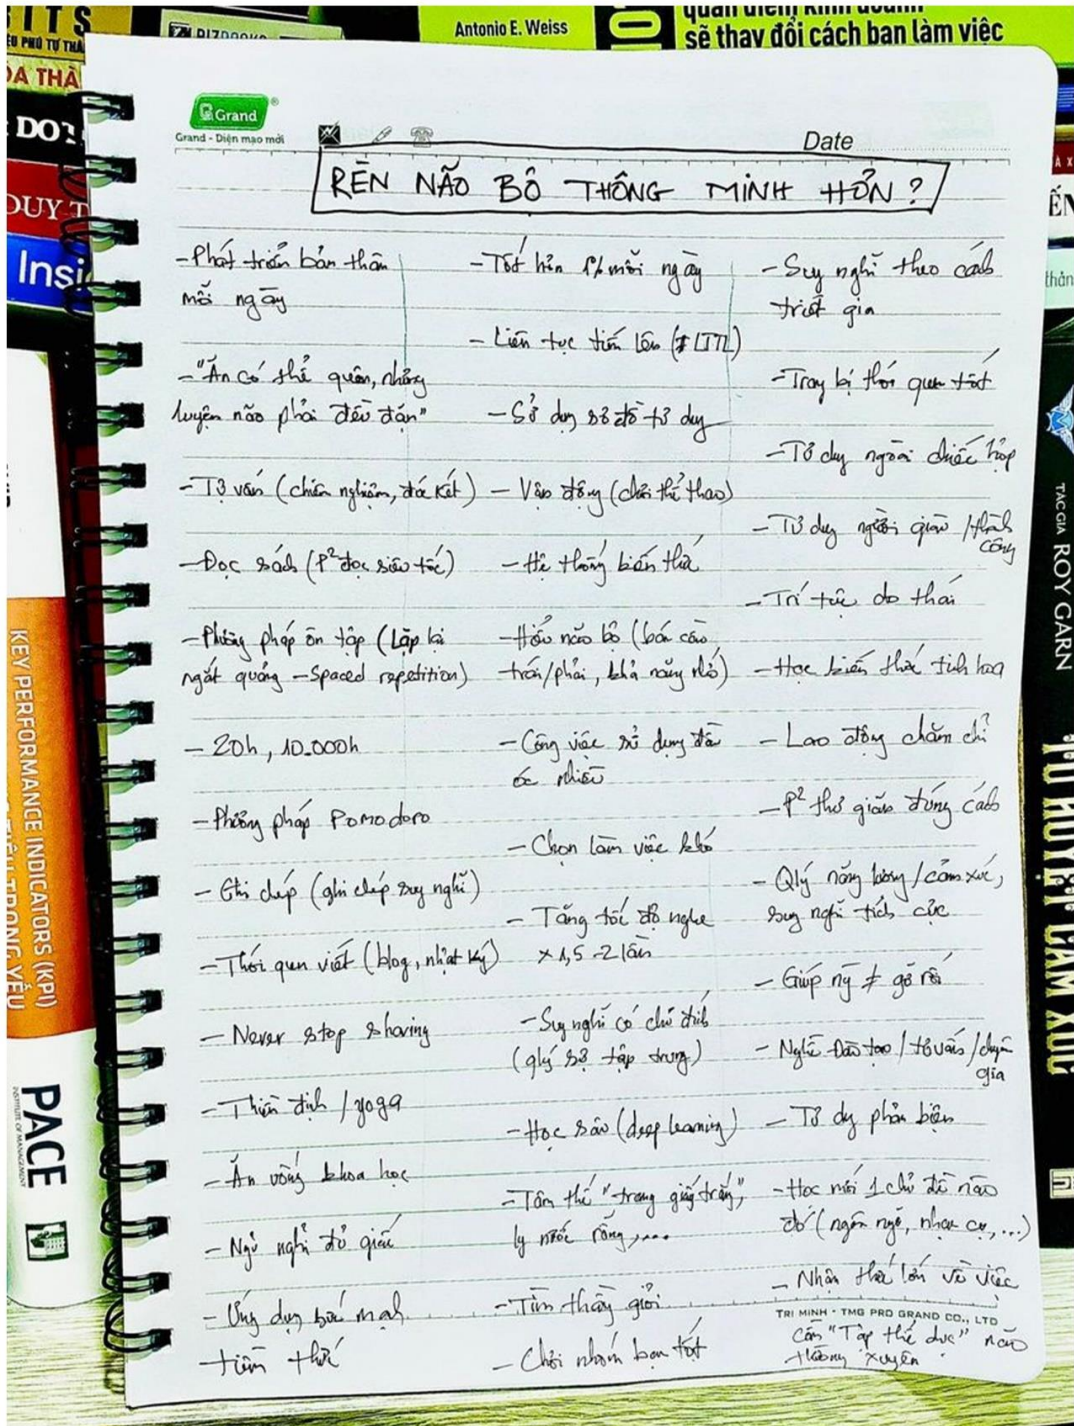 Antonio E. Weiss
sẽ thay đổi cách bạn làm việc
DUY T
Insi
Grand
Grand - Diện mạo mới
Date
RÈN NÃO BỘ THÔNG MINH HƠN?
- Phát triển bản thân
mỗi ngày
- "Ăn có thể quên, nhưng
luyện não phải đều đặn"
- Tự vấn (chiêm nghiệm, đúc kết)
- Đọc sách (P² đọc siêu tốc)
- Phương pháp ôn tập (Lặp lại
ngắt quãng - Spaced repetition)
- 20h, 10.000h
- Phương pháp Pomodoro
- Ghi chép (ghi chép suy nghĩ)
- Thói quen viết (blog, nhật ký)
- Never stop sharing
- Thiền định / yoga
- Ăn uống khoa học
- Ngủ nghỉ đủ giấc
- Ứng dụng sức mạnh
tiềm thức
- Tốt hơn 1% mỗi ngày
- Liên tục tiến lên (# LTTL)
- Sử dụng sơ đồ tư duy
- Vận động (chơi thể thao)
- Hệ thống kiến thức
- Hiểu não bộ (bán cầu
trái/phải, khả năng nhớ)
- Công việc sử dụng đầu
óc nhiều
- Chọn làm việc khó
- Tăng tốc độ nghe
x 1,5 - 2 lần
- Suy nghĩ có chủ đích
(qlý sự tập trung)
- Học sâu (deep learning)
- Tâm thế "trang giấy trắng",
ly nước rỗng,...
- Tìm thầy giỏi
- Chơi nhóm bạn tốt
- Suy nghĩ theo cách
triết gia
- Trang bị thói quen tốt
- Tư duy ngoài chiếc hộp
- Tư duy người giàu / thành
công
- Trí tuệ do thái
- Học kiến thức tinh hoa
- Lao động chăm chỉ
- P² thư giãn đúng cách
- Qlý năng lượng / cảm xúc,
suy nghĩ tích cực
- Giúp ng ≠ gỡ rối
- Nghề Đào tạo / tư vấn / chuyên
gia
- Tư duy phản biện
- Học mới 1 chủ đề nào
đó (ngôn ngữ, nhạc cụ, ...)
- Nhận thức lớn về việc
TRI MINH - TMG PRO GRAND CO., LTD
cần "Tập thể dục" não
thường xuyên
KEY PERFORMANCE INDICATORS (KPI)
PACE
INSTITUTE OF MANAGEMENT
TÁC GIẢ ROY GARN